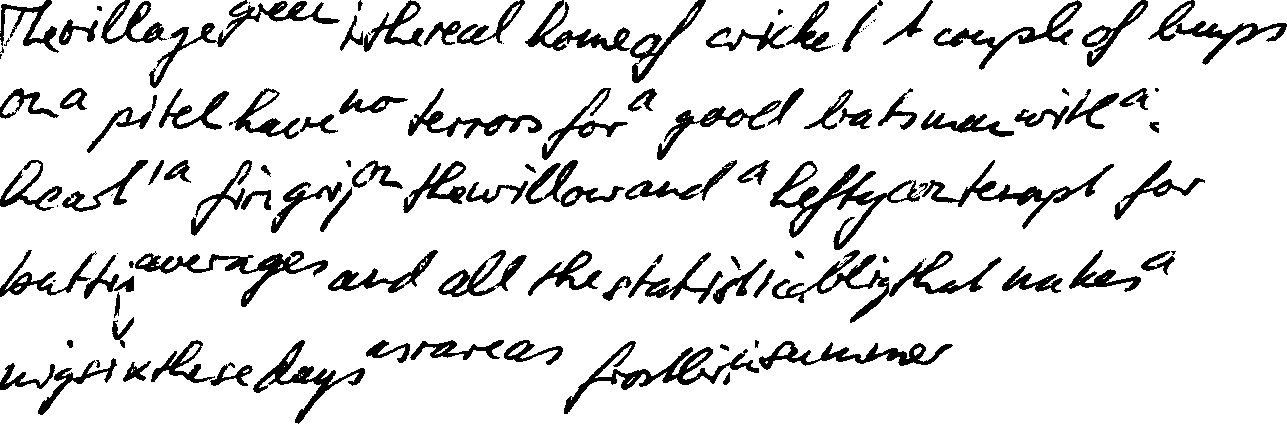 The village green is the real home of cricket A couple of bumps
on a pitch have no terrors for a good batsman with a
heart a firm grip on the willow and a hefty contempt for
batting averages and all the statistical that makes a
six these days as rare as frostbite in summer